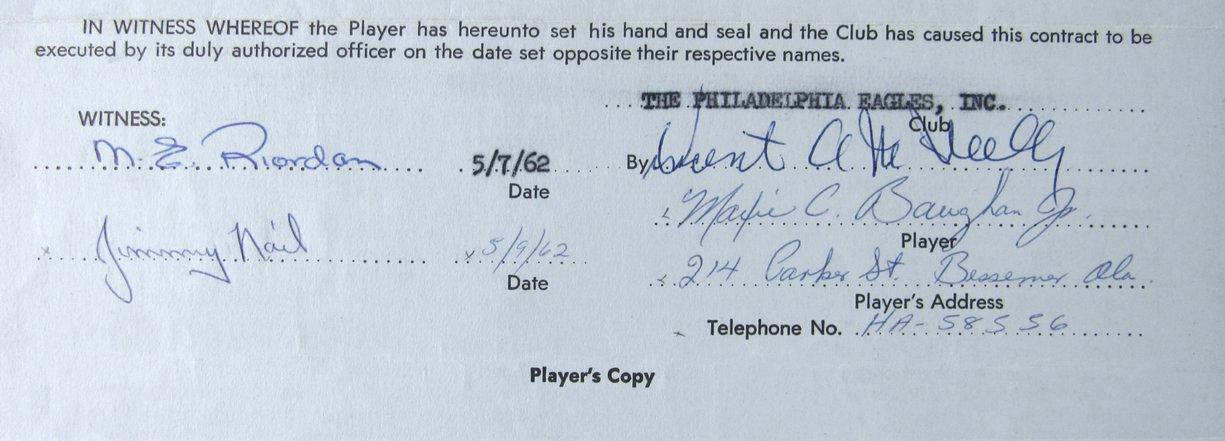 IN WITNESS WHEREOF the Player has hereunto set his hand and seal and the Club has caused this contract to be
executed by its duly authorized officer on the date set opposite their respective names.
THE PHILADELPHIA EAGLES, INC.
Club
WITNESS:
M. E. Riordan 5/7/62 By
Date
Maxie C. Baughan Jr.
Player
Jimmy Nail 5/9/62
Date
214 Parker St. Bessemer Ala
Player's Address
Telephone No. HA-58556
Player's Copy